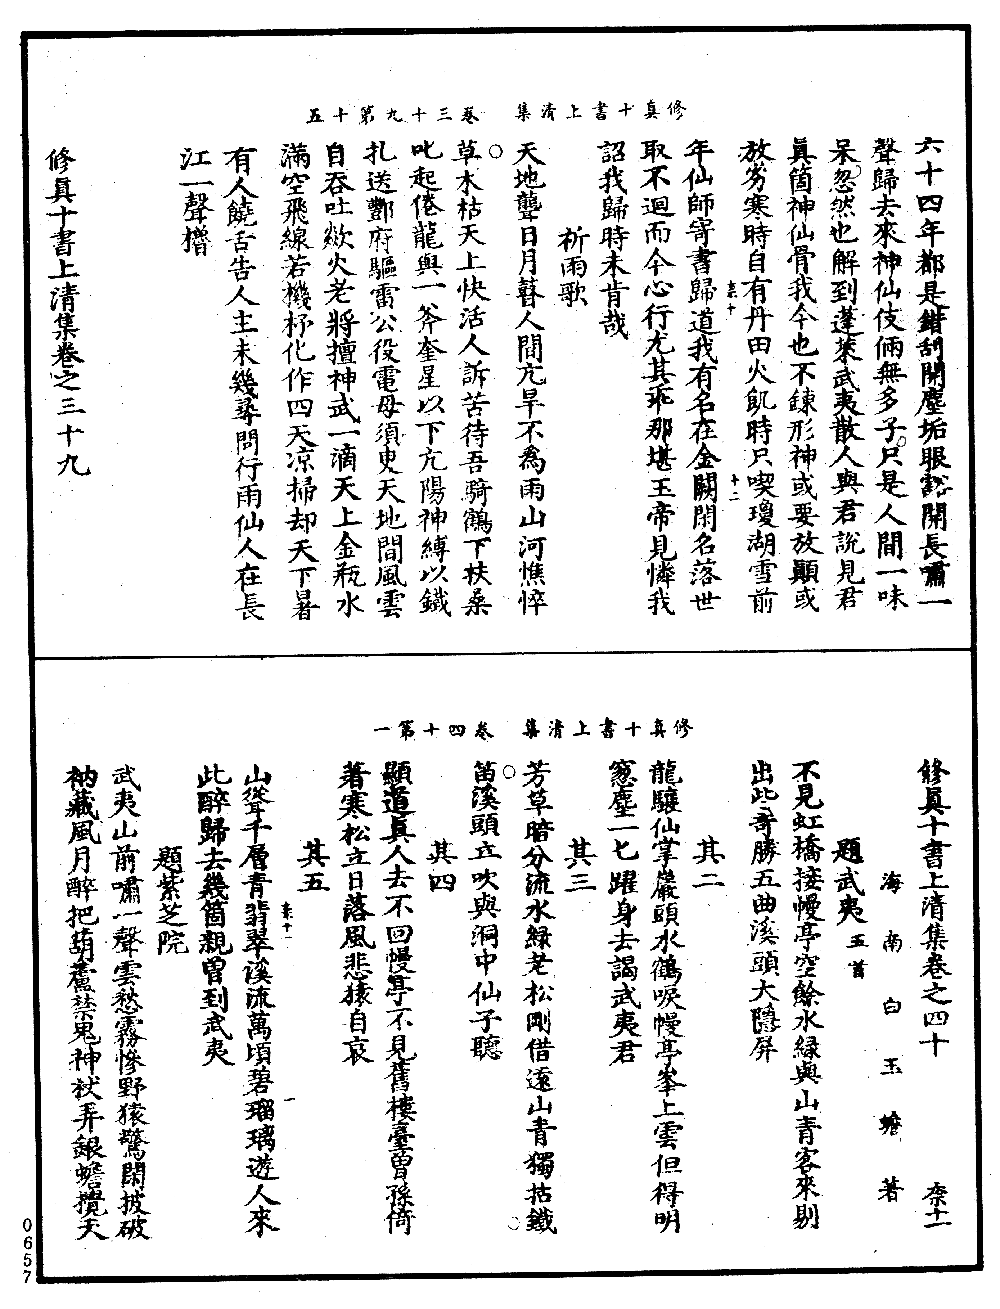 修真十書上清集　卷三十九第十五
六十四年都是錯刮開塵垢眼豁開長嘯一
聲歸去來神仙伎倆無多子只是人間一味
呆忽然也解到蓬萊武夷散人與君說見君
真箇神仙骨我今也不鍊形神或要放顛或
放劣寒時自有丹田火飢時只喫瓊湖雪前
柰十
十二
年仙師寄書歸道我有名在金闕閑名落世
取不迴而今心行尤其乖那堪玉帝見憐我
詔我歸時未肯哉
祈雨歌
天地聾日月瞽人間亢旱不為雨山河憔悴
草木枯天上快活人訴苦待吾騎鶴下扶桑
叱起倦龍與一斧奎星以下亢陽神縛以鐵
扎送酆府驅雷公役電母須臾天地間風雲
自吞吐歘火老將擅神武一滴天上金瓶水
滿空飛線若機杼化作四天凉掃却天下暑
有人饒舌告人主未幾尋問行雨仙人在長
江一聲櫓
修真十書上清集卷之三十九
修真十書上清集　卷四十第一
修真十書上清集卷之四十　柰十一
海南白玉蟾著
題武夷五首
不見虹橋接幔亭空餘水緑與山青客來剔
出此奇勝五曲溪頭大隱屏
其二
龍驤仙掌巖頭水鶴唳幔亭峯上雲但得明
窓塵一匕躍身去謁武夷君
其三
芳草暗分流水緑老松剛借遠山青獨拈鐵
笛溪頭立吹與洞中仙子聽
其四
顯道真人去不回幔亭不見舊樓臺曾孫倚
著寒松立日落風悲猿自哀
其五
柰十一
一
山聳千層青翡翠溪流萬頃碧瑠璃遊人來
此醉歸去幾箇親曾到武夷
題紫芝院
武夷山前嘯一聲雲愁霧慘野猿驚閑披破
衲藏風月醉把葫蘆禁鬼神袱弄銀蟾攪天
0657